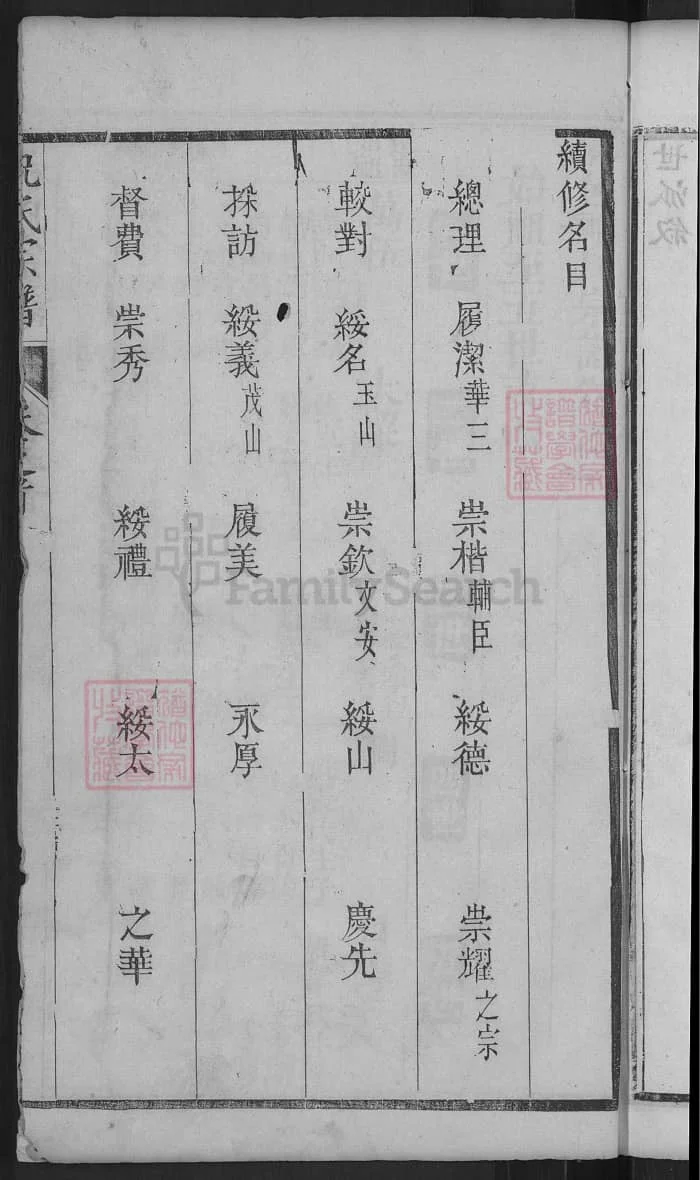 續修名目
總理 履潔華三 崇楷輔臣 綏德 崇耀之宗
較對 綏名玉山 崇欽文安 綏山 慶先
採訪 綏義茂山 履美 永厚
督費 崇秀 綏禮 綏太 之華
氏宗譜
世派敘
FamilySearch